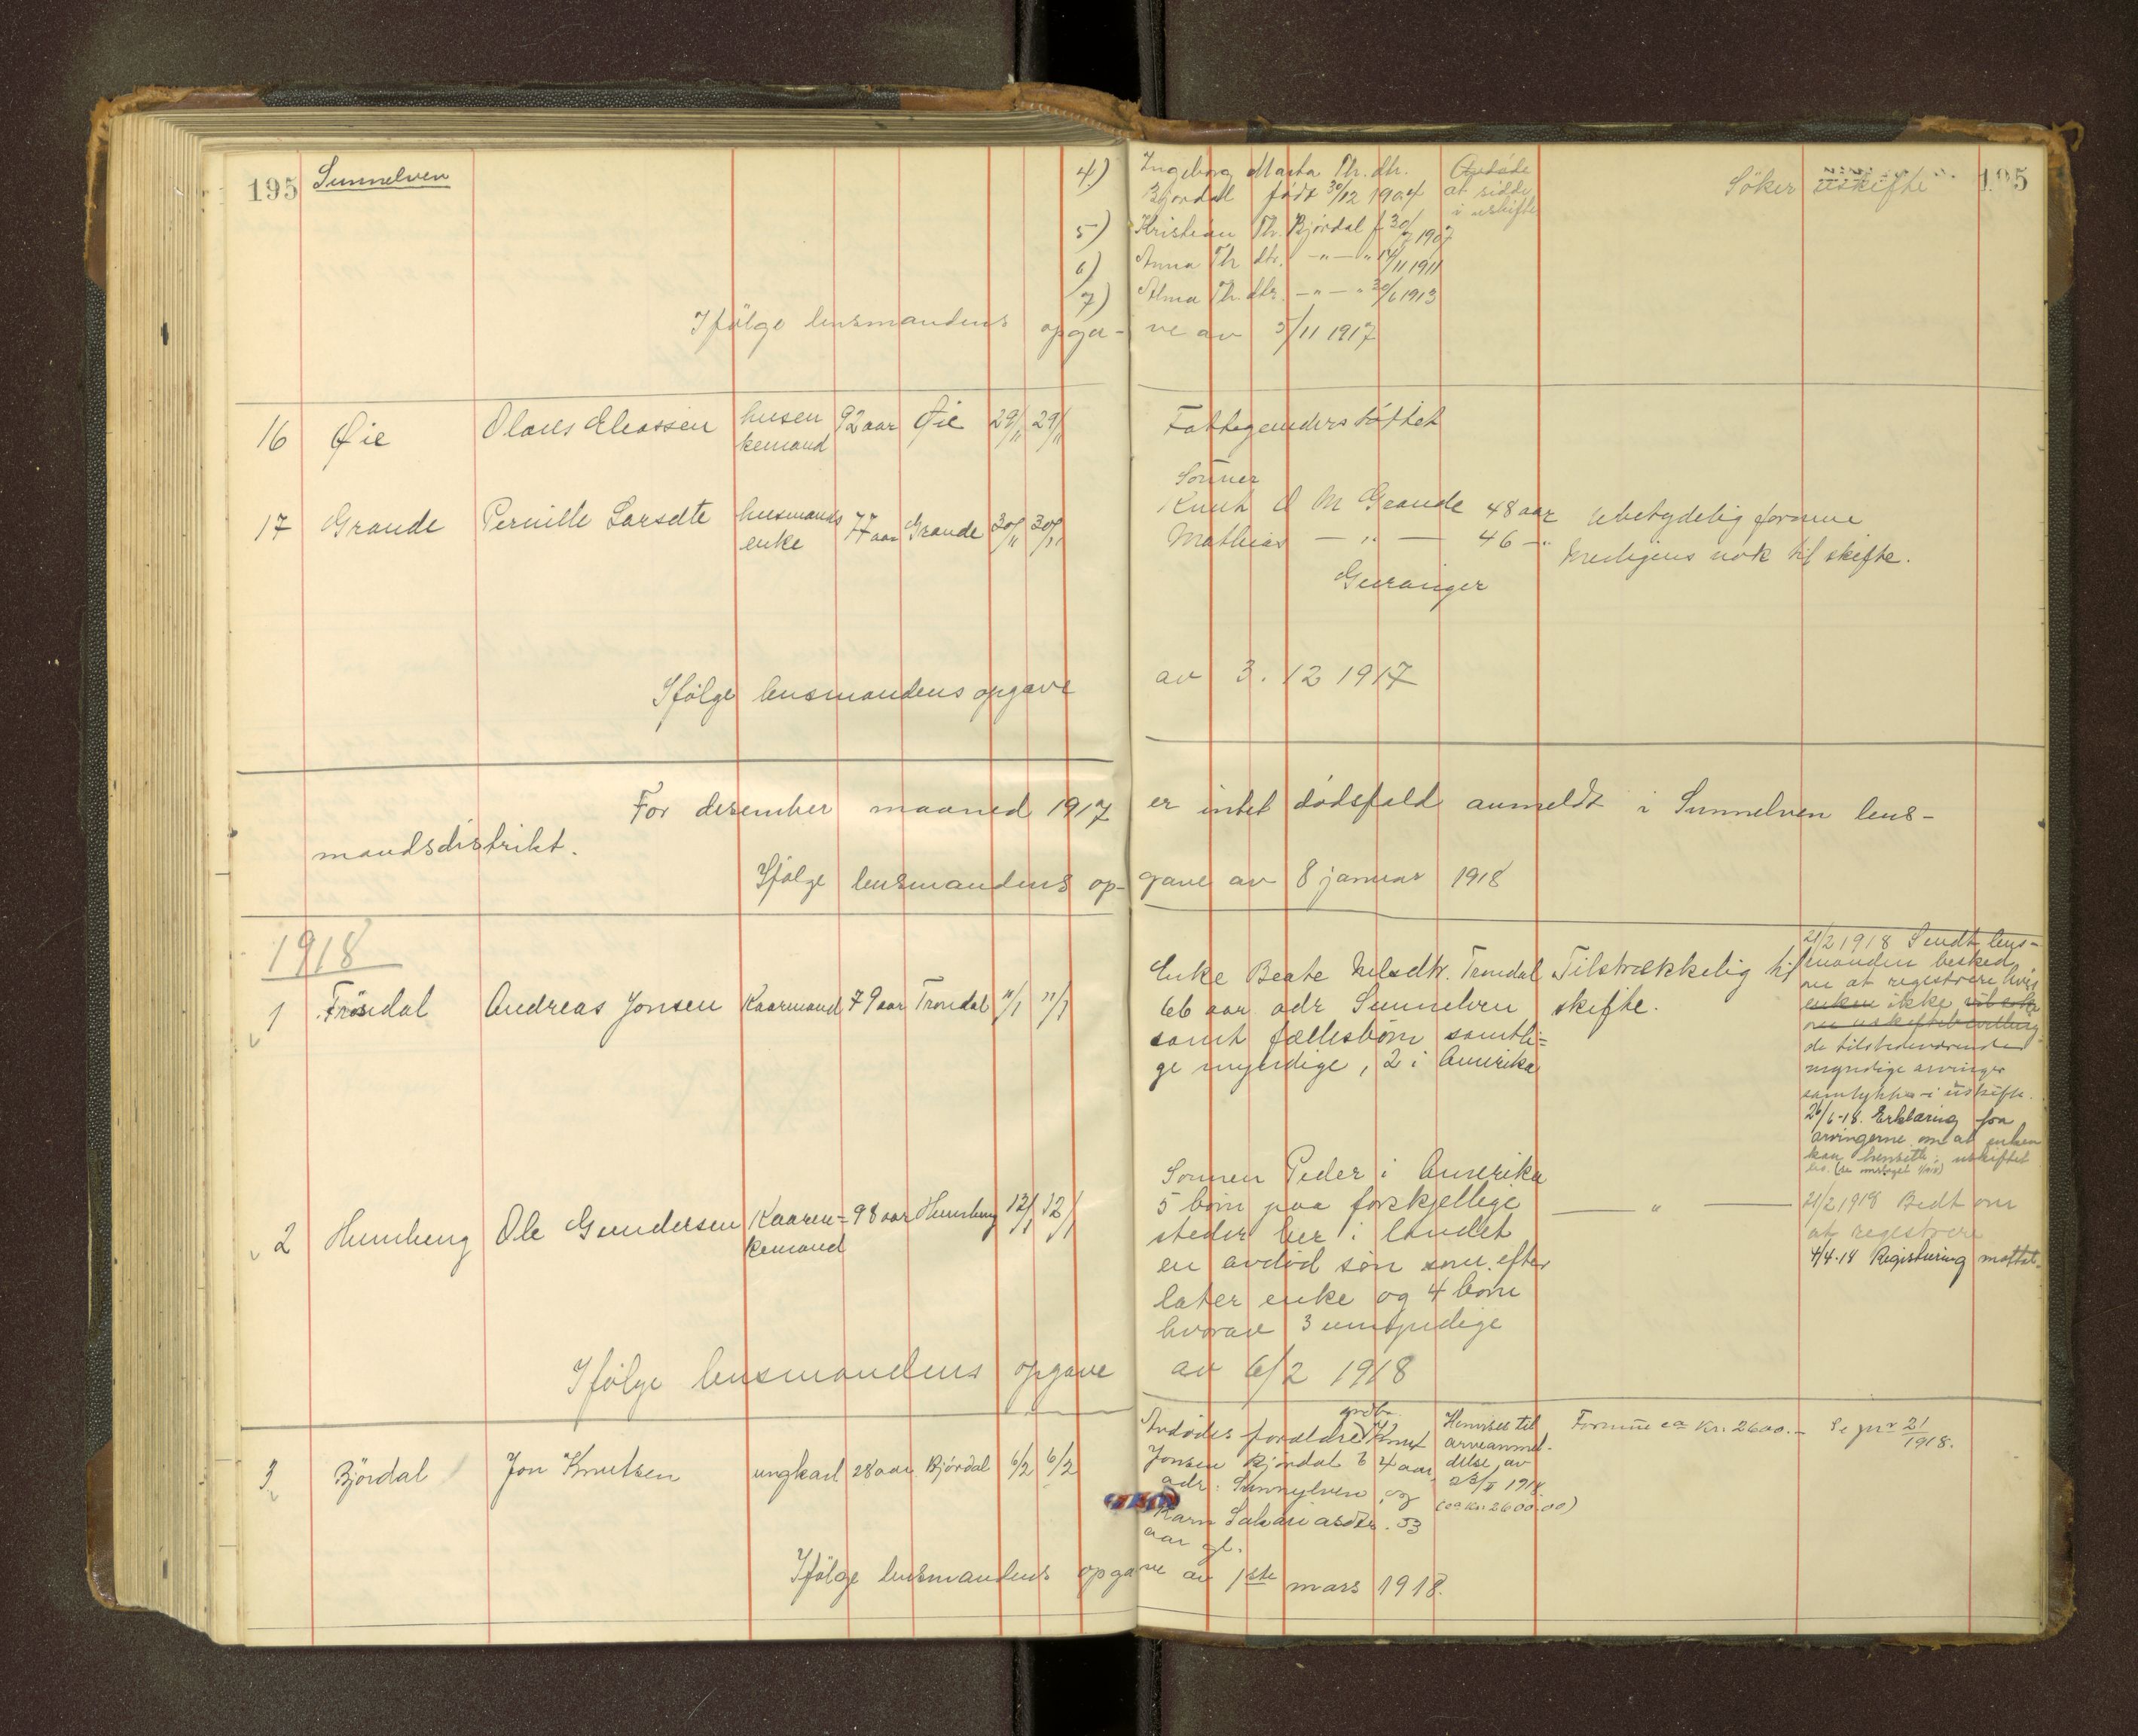 195 Sunnelven
4) Ingeborg Marta Th. dtr.
Bjørdal født 30/12 1904
at sidde
i uskifte
Søker uskifte
195
5) Kristian Th. Bjørdal f 30/7 1907
6) Anna Th dtr. -"-" 14/11 1911
7) Alma Th. dtr. -"-" 30/6 1913
Ifølge lensmandens opga-ve av 5/11 1917
16 Øie Olaus Eliassen husen 92 aar Øie 29/11 29/11 Fattigunderstöttet
kemand
Sönner
17 Grande Pernille Larsdtr husmands 77 aar Grande 30/11 30/11 Knut O M Grande 48 aar ubetydelig formue
enke Mathias -"- 46 -"- neligens nok til skifte.
Geiranger
Ifølge lensmandens opgave av 3. 12 1917
For desember maaned 1917 er intet dødsfald anmeldt i Sunnelven lens-
mandsdistrikt.
Ifølge lensmandens op-gave av 8 januar 1918
1918
1 Trondal Andreas Jonsen Kaarmand 79 aar Trondal 11/1 11/1
Enke Beate Nelsdtr. Trondal Tilstrækkelig til
66 aar adr Sunnelven skifte.
samt fællesbørn samtli=
ge myndige, 2 i Amerika
21/2 1918 Sendt lens-
manden besked
om at registrere hvis
enken ikke
om uskiftebevilling
de tilstedeværende
myndige arvinger
samtykker i uskifte.
26/6-18. Erklæring fra
arvingerne om at enken
kan hensitte i uskiftet
bo.
2 Humberg Ole Gundersen Kaaren= 98 aar Humberg 12/1 12/1
kemand
Sønnen Peder i Amerika
5 børn paa forskjellige
steder her i landet
en avdød søn som efter
later enke og 4 børn
hvorav 3 umyndige
— " —
21/2 1918 Bedt om
at registrere
4/4-18 Registrering mottat.
Ifølge lensmandens opgave av 6/2 1918
3 Bjørdal Jon Knutsen ungkarl 28 aar Bjørdal 6/2 6/2
grdbr.
Avdødes forældre Knut
Jonsen Bjørdal 64 aar,
adr: Sunnylven, og
Karn Sakariasdtr. 53
aar gl.
Henvises til
arveanmel-
delse av
23/5 1918.
(ca Kr. 2600.00)
Formue ca Kr. 2600.-
Se jnr 21/1918.
Ifølge lensmandens opgave av 1ste mars 1918.